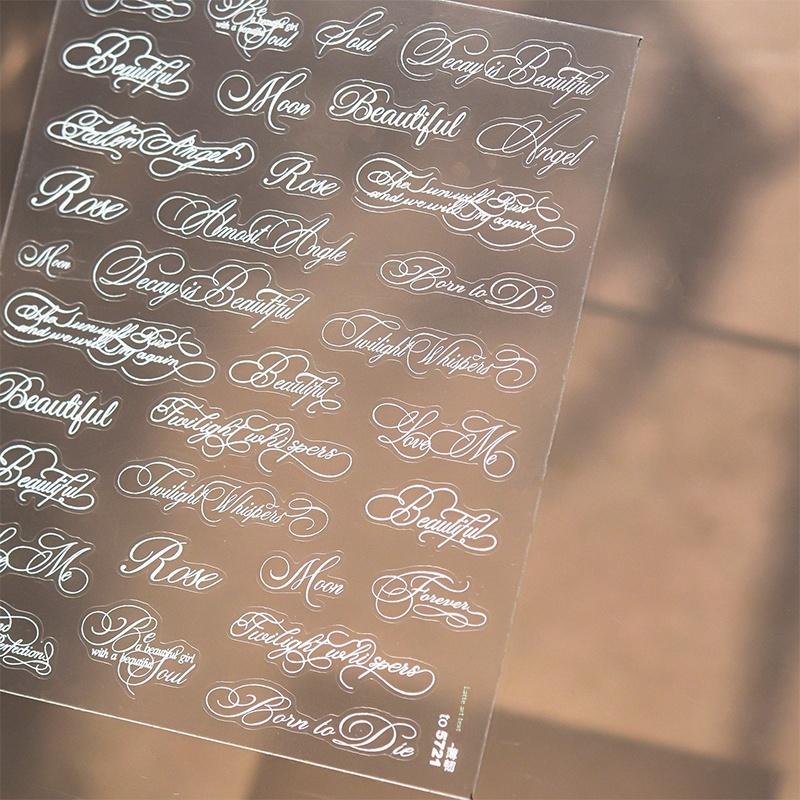 Be
a beautiful girl
with a beautiful
Soul
Soul
Decay is Beautiful
Beautiful
Moon
Beautiful
Angel
Fallen Angel
Rose
The sun will Rise
and we will Try again
Rose
Almost Angle
Born to Die
Moon
Decay is Beautiful
Twilight Whispers
The sun will Rise
and we will Try again
Beautiful
Love Me
Beautiful
Twilight whi spers
Beautiful
Twilight Whispers
Beautiful
Me
Rose
Moon
Forever
Perfections
Be
a beautiful girl
with a beautiful
Soul
Twilight whi spers
Born to Die
Latte art text
to 5721